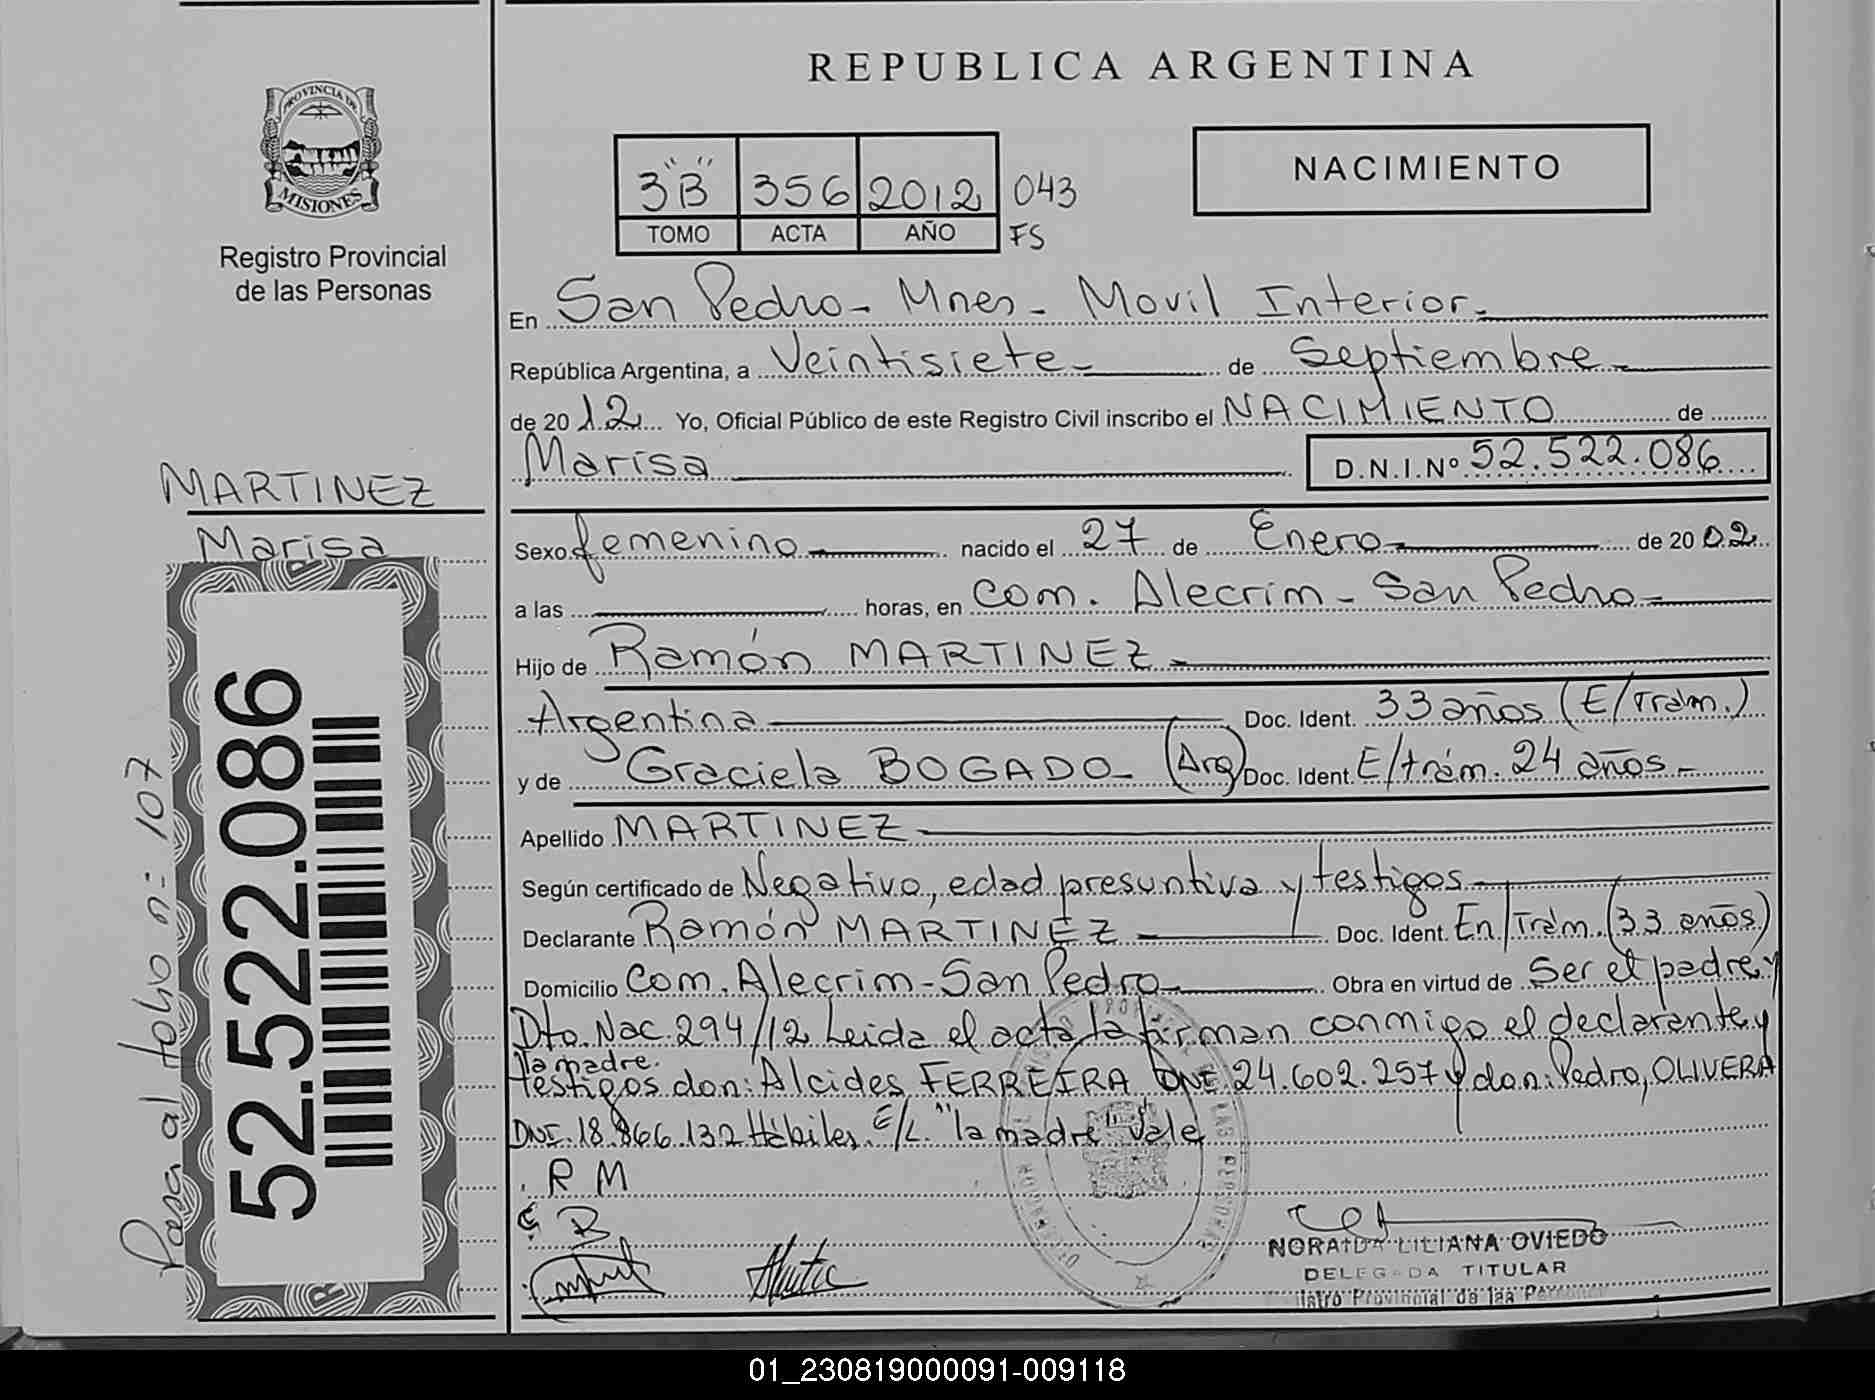 REPUBLICA ARGENTINA
PROVINCIA DE
MISIONES
Registro Provincial
de las Personas
3"B" 356 2012 043
TOMO ACTA AÑO FS
NACIMIENTO
En San Pedro - Mnes - Movil Interior.
República Argentina, a Veintisiete de Septiembre
de 2012 Yo, Oficial Público de este Registro Civil inscribo el NACIMIENTO de
Marisa D.N.I.Nº 52.522.086
MARTINEZ
Marisa
Sexo femenino nacido el 27 de Enero de 2002
a las horas, en Com. Alecrim - San Pedro
Hijo de Ramón MARTINEZ
Argentina Doc. Ident. 33 años (E/Trám.)
y de Graciela BOGADO (Arg) Doc. Ident. E/trám. 24 años
Apellido MARTINEZ
Según certificado de Negativo, edad presuntiva y testigos
Declarante Ramón MARTINEZ Doc. Ident. En/Trám. (33 años)
Domicilio Com. Alecrim - San Pedro Obra en virtud de Ser el padre y
Dto. Nac. 294/12 Leida el acta la firman conmigo el declarante y
la madre.
testigos don: Alcides FERREIRA DNI. 24.602.257 y don: Pedro, OLIVERA
DNI. 18.866.132 Hábiles. E/L. "la madre" Vale
R M
G B
NORAIDA LILIANA OVIEDO
DELEGADA TITULAR
52.522.086
Pasa al folio nº 107
01_230819000091-009118